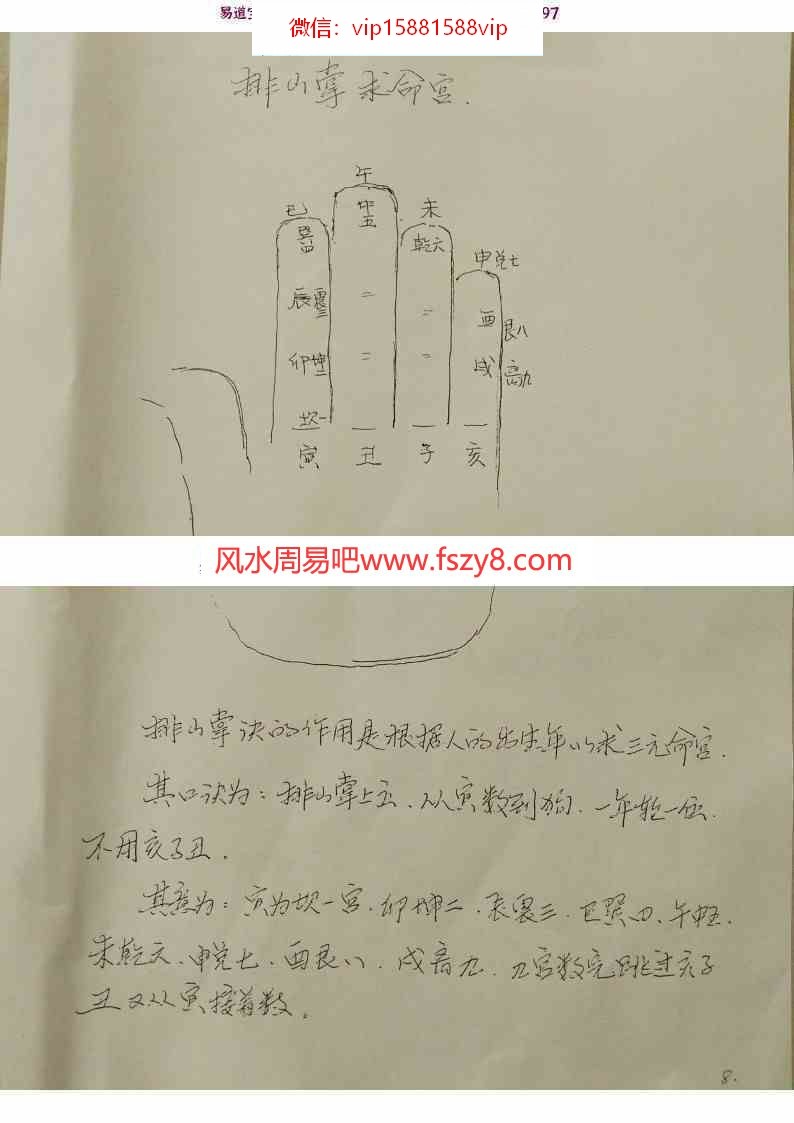 易道
微信：vip15881588vip
97
排山掌求命宫．
午
巳 中五 未
巽四 乾六
申兑七
辰震三 = = 酉 艮八
卯坤二 = = 戌 离九
坎一
寅 丑 子 亥
风水周易吧www.fszy8.com
排山掌诀的作用是根据人的出生年以求三元命宫．
其口诀为：排山掌上立．从寅数到狗．一年轮一位．
不用亥子丑．
其意为：寅为坎一宫．卯坤二．辰震三．巳巽四．午中五．
未乾六．申兑七．酉艮八．戌离九．九宫数完跳过亥子
丑又从寅接着数．
8.